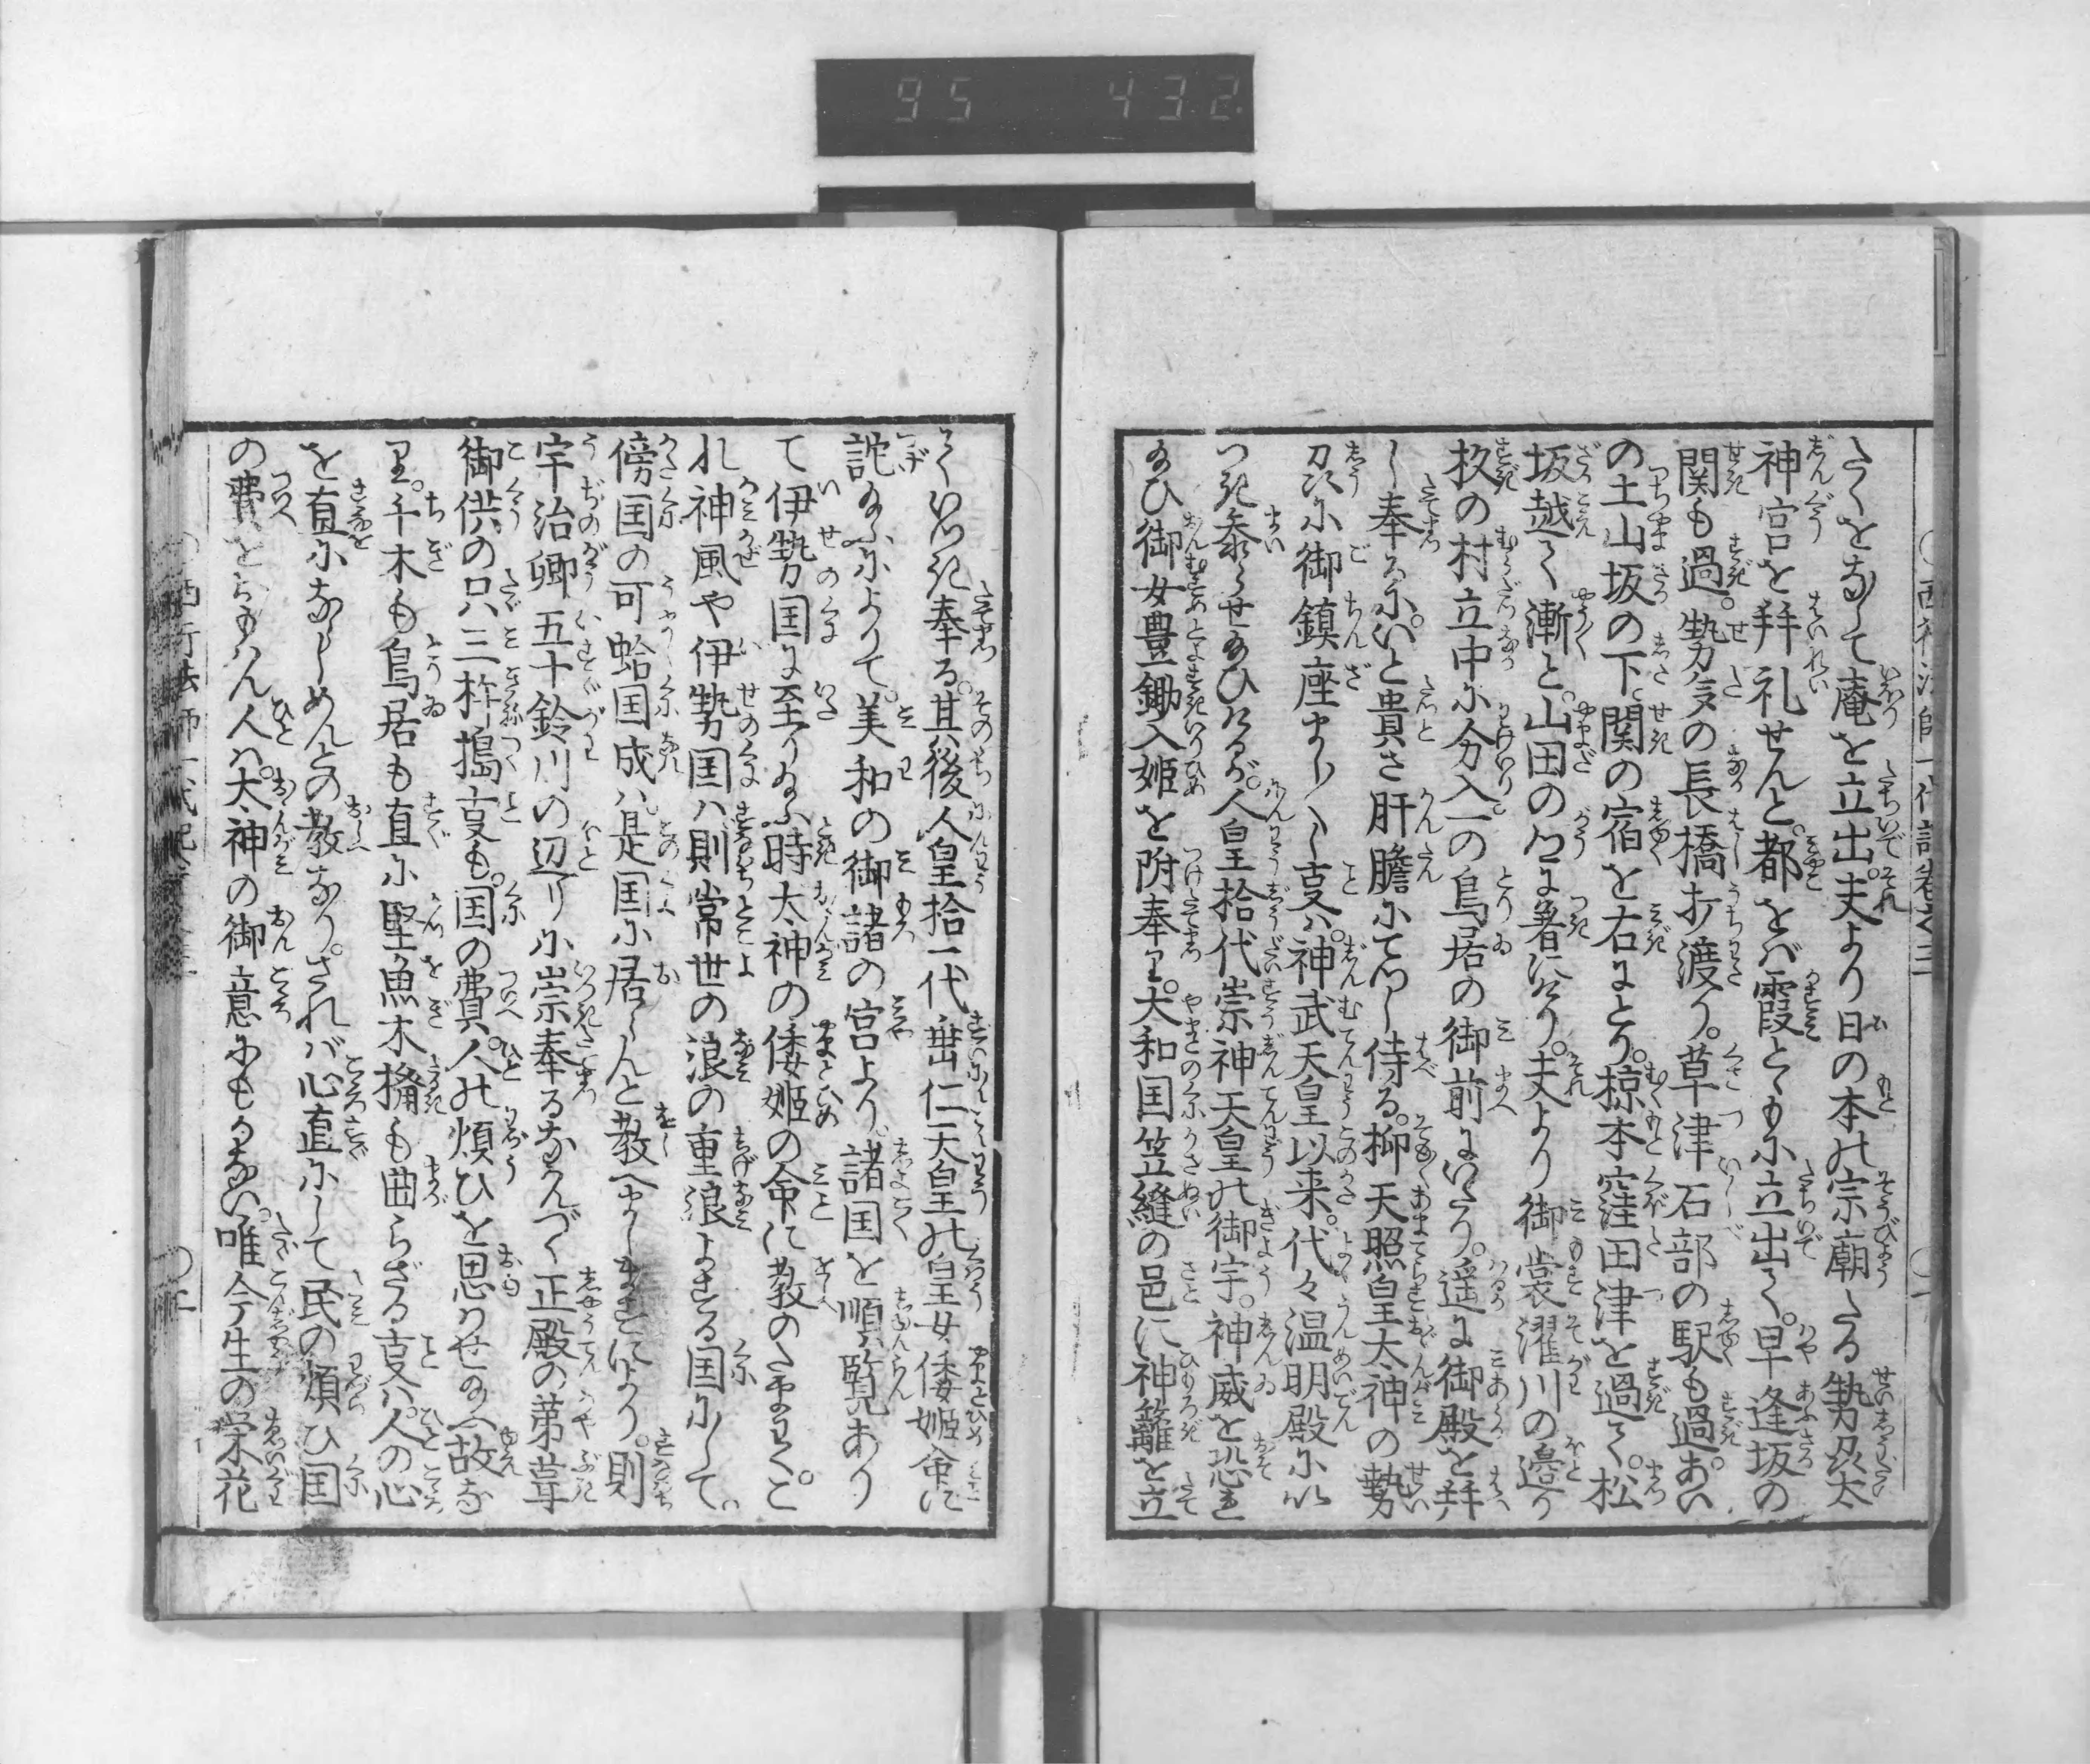 95 432
たくをなして庵を立出。夫より日の本の宗廟たる勢州太
神宮を拝礼せんと。都をば霞とともに立出て。早逢坂の
関も過。勢多の長橋打渡り。草津石部の駅も過。あい
の土山坂の下関の宿を右にとり。椋本窪田津を過て。松
坂越て漸と。山田の郷に着にけり。夫より御裳濯川の邊り
杦の村立中に分入一の鳥居の御前にいたり。遥に御殿を拝
し奉るに。いと貴さ肝膽にてつし侍る。抑天照皇太神の勢
刕に御鎮座まし〱し㕝は。神武天皇以来。代々温明殿にい
つき奉らせ給ひけるが。人皇拾代崇神天皇の御宇。神威を恐れ
給ひ御女豊鋤入姫を附奉り。大和国笠縫の邑に神籬を立
ていつき奉る。其後人皇拾一代垂仁天皇の皇女倭姫命に
詫給ふによりて。美和の御諸の宮より。諸国を順覧あり
て伊勢国に至り給ふ時大神の倭姫の命に教のたまわく。こ
れ神風や伊勢国は則常世の浪の重浪よする国にして。
傍国の可怜国成ば。是国に居らんと教へましますにより。則
宇治卿五十鈴川の辺りに崇奉るなんかんづく正殿の茅葺
御供の只三杵搗㕝も。国の費。人の煩ひを思召せ給ふ故な
り。千木も鳥居も直に堅魚木擶も曲らざる㕝は。人の心
を直になさしめんとの教なり。されば心直にして民の煩ひ国
の費をいとはん人は。大神の御意にもかなひ。唯今生の栄花
西行法師一代記巻之三